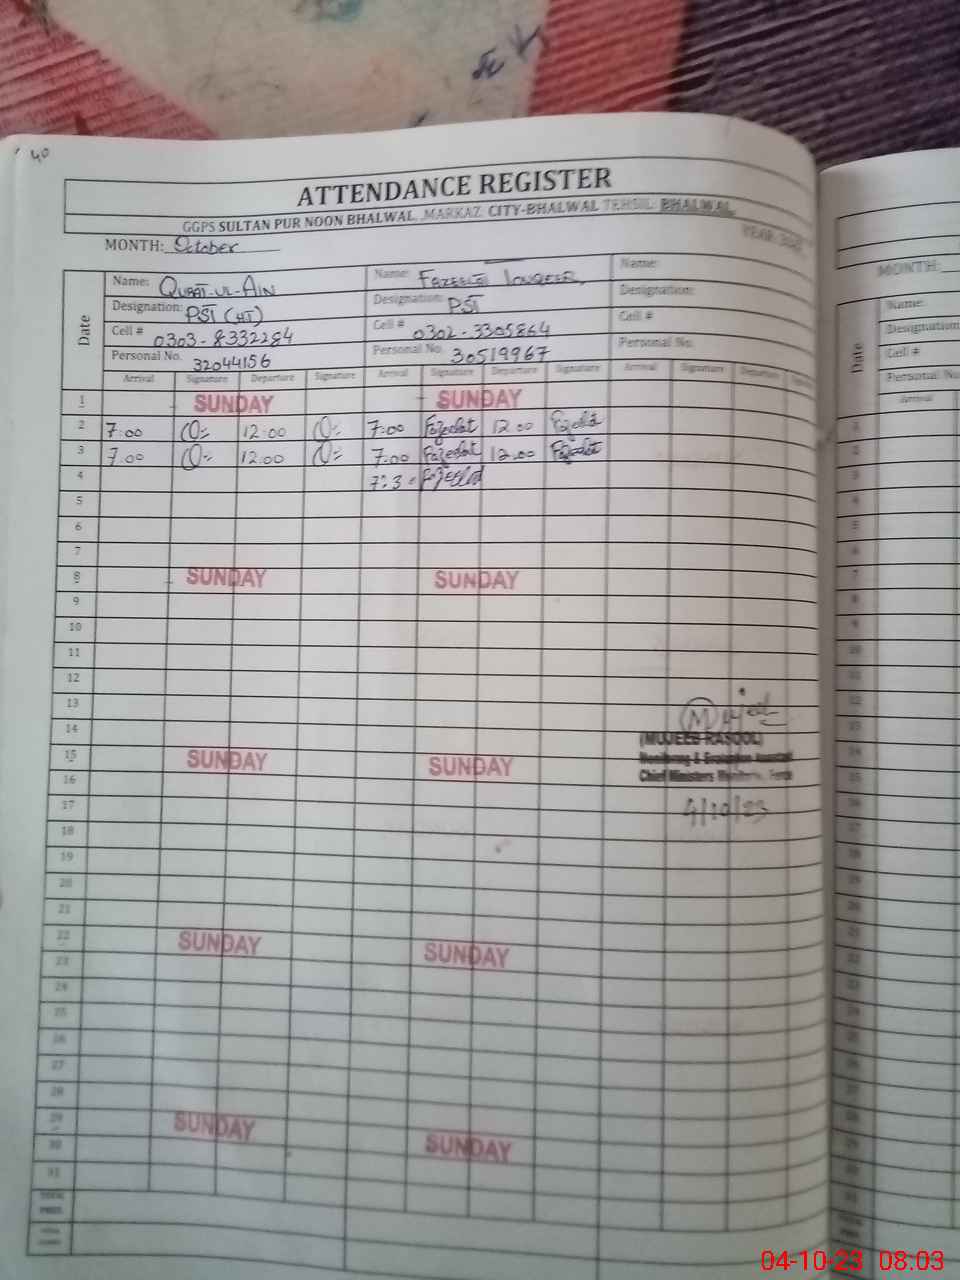 40
ATTENDANCE REGISTER
GGPS SULTAN PUR NOON BHALWAL, MARKAZ CITY-BHALWAL TEHSIL BHALWAL
MONTH: October YEAR:
Name: QURAT-UL-AIN Name: Name:
Designation: PST (HT) Designation: PST Designation:
Cell # 0303-8332284 Cell # 0302-3305864 Cell #
Personal No. 32044156 Personal No. 30519967 Personal No.
Date
Arrival Signature Departure Signature Arrival Signature Departure Signature Arrival Signature Departure
1 SUNDAY SUNDAY
2 7:00 12:00 7:00 Fazeelat 12:00
3 7:00 12:00 7:00 Fazeelat 12:00 Fazeelat
4 7:3 Fazeelat
5
6
7
8 SUNDAY SUNDAY
9
10
11
12
13
14
15 SUNDAY SUNDAY
16
17
18
19
20
21
22 SUNDAY SUNDAY
23
24
25
26
27
28
29 SUNDAY SUNDAY
30
31
TOTAL
Mujeeb
(MUJEEB RASOOL)
Monitoring & Evaluation Assistant
Chief Ministers
4/10/23
MONTH:
Name:
Designation
Cell #
Personal No
Date
Arrival
04-10-23 08:03